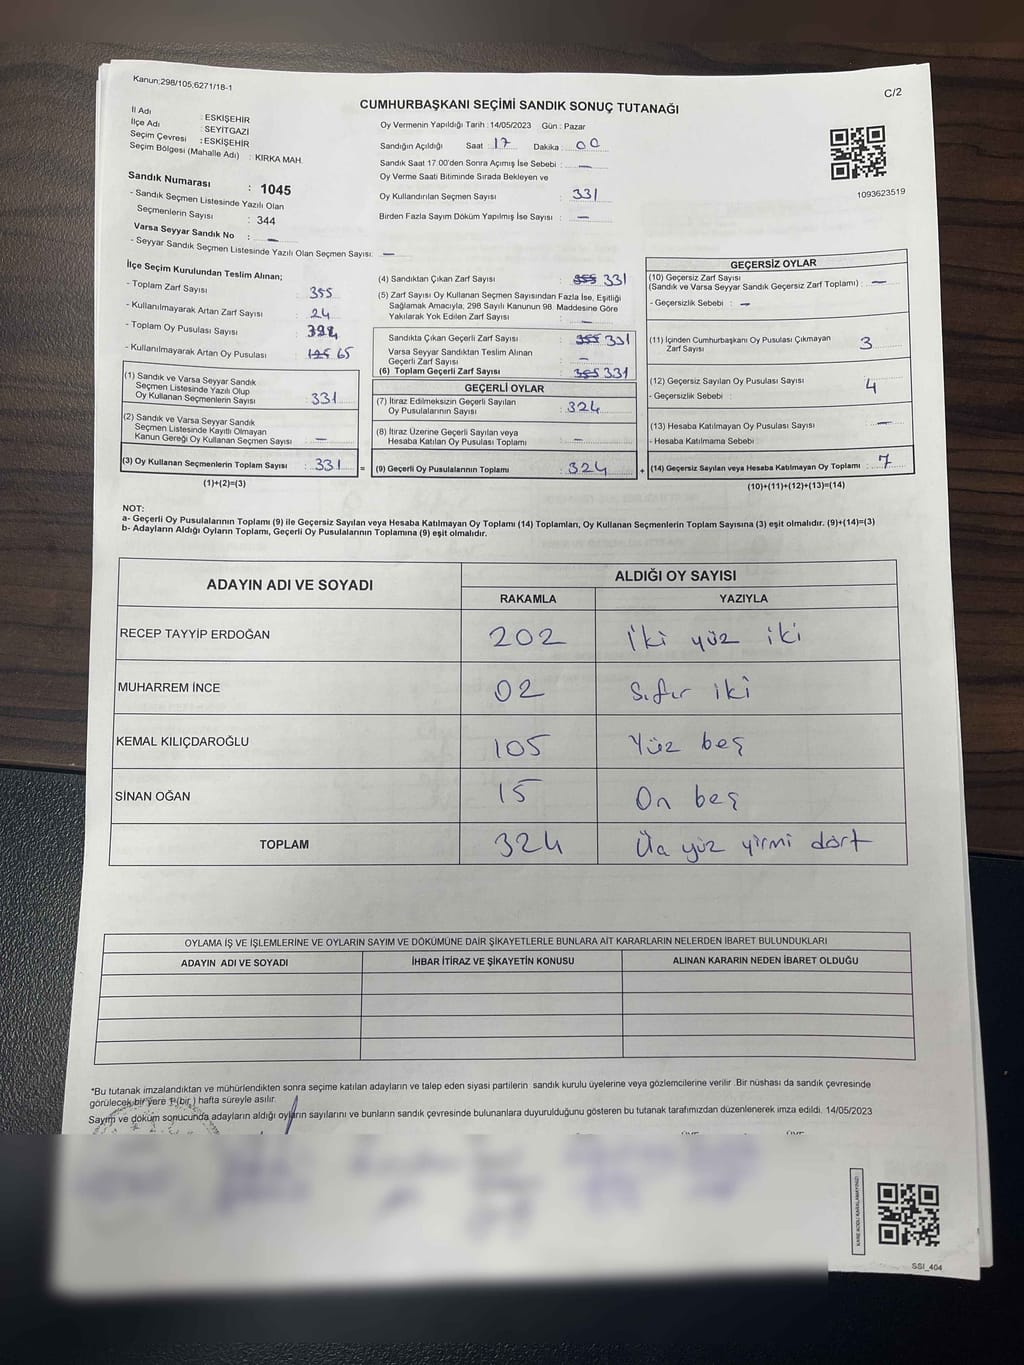 Kanun;298/105,6271/18-1
C/2
CUMHURBAŞKANI SEÇİMİ SANDIK SONUÇ TUTANAĞI
İl Adı : ESKİŞEHİR
İlçe Adı : SEYİTGAZİ
Seçim Çevresi : ESKİŞEHİR
Seçim Bölgesi (Mahalle Adı) : KIRKA MAH.
Sandık Numarası : 1045
- Sandık Seçmen Listesinde Yazılı Olan
Seçmenlerin Sayısı : 344
Varsa Seyyar Sandık No : –
- Seyyar Sandık Seçmen Listesinde Yazılı Olan Seçmen Sayısı: –
Oy Vermenin Yapıldığı Tarih : 14/05/2023 Gün : Pazar
Sandığın Açıldığı Saat : 17 Dakika : 00
Sandık Saat 17.00'den Sonra Açımış İse Sebebi : –
Oy Verme Saati Bitiminde Sırada Bekleyen ve
Oy Kullandırılan Seçmen Sayısı : 331
Birden Fazla Sayım Döküm Yapılmış İse Sayısı : –
1093623519
İlçe Seçim Kurulundan Teslim Alınan;
- Toplam Zarf Sayısı : 355
- Kullanılmayarak Artan Zarf Sayısı : 24
- Toplam Oy Pusulası Sayısı :
- Kullanılmayarak Artan Oy Pusulası : 65
(1) Sandık ve Varsa Seyyar Sandık
Seçmen Listesinde Yazılı Olup
Oy Kullanan Seçmenlerin Sayısı : 331
(2) Sandık ve Varsa Seyyar Sandık
Seçmen Listesinde Kayıtlı Olmayan
Kanun Gereği Oy Kullanan Seçmen Sayısı : –
(3) Oy Kullanan Seçmenlerin Toplam Sayısı : 331 =
(1)+(2)=(3)
(4) Sandıktan Çıkan Zarf Sayısı : 355 331
(5) Zarf Sayısı Oy Kullanan Seçmen Sayısından Fazla İse, Eşitliği
Sağlamak Amacıyla, 298 Sayılı Kanunun 98. Maddesine Göre
Yakılarak Yok Edilen Zarf Sayısı : –
Sandıkta Çıkan Geçerli Zarf Sayısı : 355 331
Varsa Seyyar Sandıktan Teslim Alınan
Geçerli Zarf Sayısı : –
(6) Toplam Geçerli Zarf Sayısı : 355 331
GEÇERLİ OYLAR
(7) İtiraz Edilmeksizin Geçerli Sayılan
Oy Pusulalarının Sayısı : 324
(8) İtiraz Üzerine Geçerli Sayılan veya
Hesaba Katılan Oy Pusulası Toplamı : –
(9) Geçerli Oy Pusulalarının Toplamı : 324 +
GEÇERSİZ OYLAR
(10) Geçersiz Zarf Sayısı
(Sandık ve Varsa Seyyar Sandık Geçersiz Zarf Toplamı) : –
- Geçersizlik Sebebi : –
(11) İçinden Cumhurbaşkanı Oy Pusulası Çıkmayan
Zarf Sayısı : 3
(12) Geçersiz Sayılan Oy Pusulası Sayısı : 4
- Geçersizlik Sebebi :
(13) Hesaba Katılmayan Oy Pusulası Sayısı : –
- Hesaba Katılmama Sebebi
(14) Geçersiz Sayılan veya Hesaba Katılmayan Oy Toplamı : 7
(10)+(11)+(12)+(13)=(14)
NOT:
a- Geçerli Oy Pusulalarının Toplamı (9) ile Geçersiz Sayılan veya Hesaba Katılmayan Oy Toplamı (14) Toplamları, Oy Kullanan Seçmenlerin Toplam Sayısına (3) eşit olmalıdır. (9)+(14)=(3)
b- Adayların Aldığı Oyların Toplamı, Geçerli Oy Pusulalarının Toplamına (9) eşit olmalıdır.
ADAYIN ADI VE SOYADI ALDIĞI OY SAYISI
RAKAMLA YAZIYLA
RECEP TAYYİP ERDOĞAN 202 İki yüz iki
MUHARREM İNCE 02 Sıfır iki
KEMAL KILIÇDAROĞLU 105 Yüz beş
SİNAN OĞAN 15 On beş
TOPLAM 324 yüz yirmi dört
OYLAMA İŞ VE İŞLEMLERİNE VE OYLARIN SAYIM VE DÖKÜMÜNE DAİR ŞİKAYETLERLE BUNLARA AİT KARARLARIN NELERDEN İBARET BULUNDUKLARI
ADAYIN ADI VE SOYADI İHBAR İTİRAZ VE ŞİKAYETİN KONUSU ALINAN KARARIN NEDEN İBARET OLDUĞU
*Bu tutanak imzalandıktan ve mühürlendikten sonra seçime katılan adayların ve talep eden siyasi partilerin sandık kurulu üyelerine veya gözlemcilerine verilir .Bir nüshası da sandık çevresinde
görülecek bir yere 1 (bir ) hafta süreyle asılır.
Sayım ve döküm sonucunda adayların aldığı oyların sayılarını ve bunların sandık çevresinde bulunanlara duyurulduğunu gösteren bu tutanak tarafımızdan düzenlenerek imza edildi. 14/05/2023
SSI_404